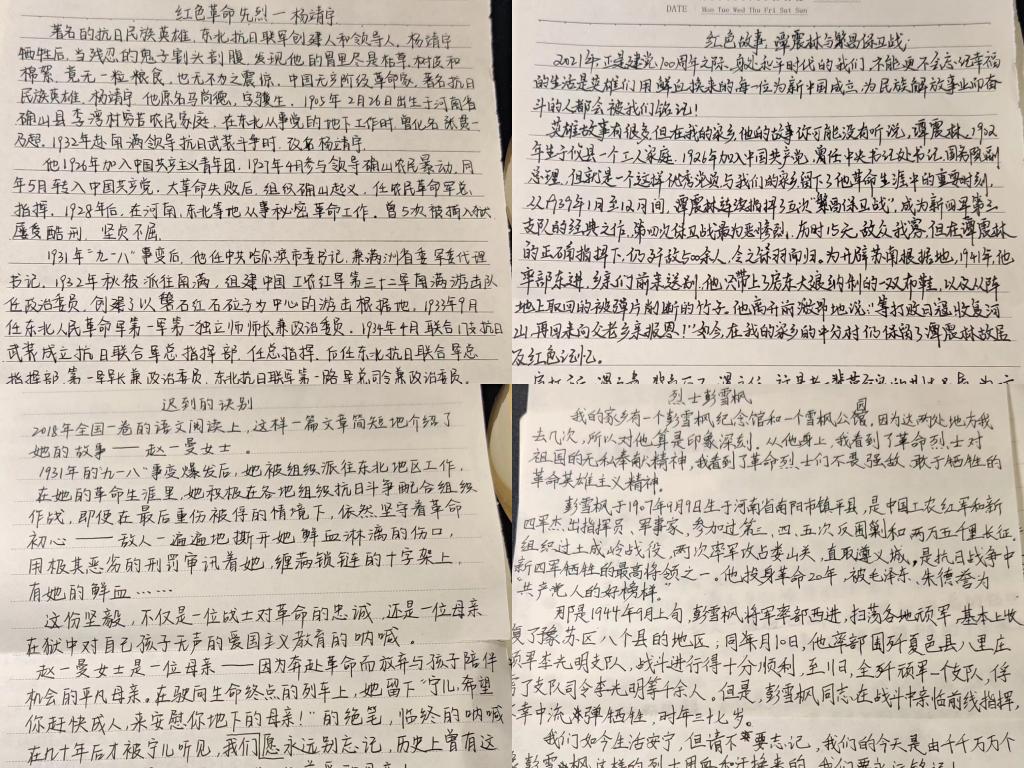 红色革命先烈—杨靖宇
著名的抗日民族英雄,东北抗日联军创建人和领导人,杨靖宇
牺牲后,当残忍的鬼子割头剖腹,发现他的胃里尽是枯草、树皮和
棉絮,竟无一粒粮食,也无不为之震惊,中国无产阶级革命家,著名抗日
民族英雄,杨靖宇,他原名马尚德,字骥生,1905年2月26日出生于河南省
确山县李湾村穷苦农民家庭,在东北从事党的地下工作时,曾化名张贯一
乃超,1932年赴南满领导抗日武装斗争时,改名杨靖宇。
他1926年加入中国共产主义青年团,1927年4月参与领导确山农民暴动,同
年5月转入中国共产党,大革命失败后,组织确山起义,任农民革命军总
指挥,1928年后,在河南,东北等地从事秘密革命工作。曾5次被捕入狱
屡受酷刑,坚贞不屈。
1931年“九一八”事变后,他任中共哈尔滨市委书记,兼满洲省委军委代理
书记,1932年秋被派往南满,组建中国工农红军第三十二军南满游击队
任政治委员,创建了以磐石红石砬子为中心的游击根据地,1933年9月
任东北人民革命军第一军第一独立师师长兼政治委员,1934年4月联合17支抗日
武装成立抗日联合军总指挥部,任总指挥,后任东北抗日联合军总
指挥部,第一军军长兼政治委员,东北抗日联军第一路军总司令兼政治委员。
DATE Mon Tue Wed Thu Fri Sat Sun
红色故事,谭震林与繁昌保卫战
2021年正是建党100周年之际,身处和平时代的我们,不能更不会忘记幸福
的生活是英雄们用鲜血换来的,每一位为新中国成立,为民族解放事业而奋
斗的人都会被我们铭记!
英雄故事有很多但在我的家乡他的故事你可能没有听说,谭震林,1902
年生于攸县一个工人家庭,1926年加入中国共产党,曾任中央书记处书记,国务院副
总理,但就是一个这样优秀党员与我们的家乡留下了他革命生涯中的重要时刻,
从1939年1月至12月间,谭震林连续指挥了五次“繁昌保卫战”,成为新四军第三
支队的经典之作,第四次保卫战最为惨烈,历时15天,敌众我寡,但在谭震林
的正确指挥下,仍歼敌500余人,令之铩羽而归。为开辟苏南根据地,1941年,他
率部东进,乡亲们前来送别,他只带上了房东大娘纳制的一双布鞋,以及从阵
地上取回的被弹片削断的竹子。他离开前激昂地说:“等打败日寇,收复河
山,再回来向父老乡亲报恩!”如今,在我的家乡的中分村仍保留了谭震林故居
及红色记忆。
迟到的诀别
2018年全国一卷的语文阅读上,这样一篇文章简短地介绍了
她的故事——赵一曼女士。
1931年的“九一八”事变爆发后,她被组织派往东北地区工作,
在她的革命生涯里,她积极在各地组织抗日斗争配合组织
作战,即使在最后重伤被俘的情境下,依然坚守着革命
初心——敌人一遍遍地撕开她鲜血淋漓的伤口,
用极其恶劣的刑罚审讯着她,缠满锁链的十字架上,
有她的鲜血……
这份坚毅,不仅是一位战士对革命的忠诚,还是一位母亲
在狱中对自己孩子无声的爱国主义教育的呐喊。
赵一曼女士是一位母亲——因为奔赴革命而放弃与孩子陪伴
机会的平凡母亲。在驶向生命终点的列车上,她留下“宁儿,希望
你赶快成人,来安慰你地下的母亲!”的绝笔,临终的呐喊
在几十年后才被宁儿听见,我们愿永远别忘记,历史上曾有这
烈士彭雪枫
我的家乡有一个彭雪枫纪念馆和一个雪枫公园,因为这两处地方我
去几次,所以对他算是印象深刻,从他身上,我看到了革命烈士对
祖国的无私奉献精神,我看到了革命烈士们不畏强敌,敢于牺牲的
革命英雄主义精神。
彭雪枫于1907年9月9日生于河南省南阳市镇平县,是中国工农红军和新
四军杰出指挥员、军事家,参加过第三、四、五次反围剿和两万五千里长征,
组织过土成岭战役,两次率军攻占娄山关,直取遵义城,是抗日战争中
新四军牺牲的最高将领之一。他投身革命20年,被毛泽东、朱德誉为
“共产党人的好榜样。
那是1944年9月上旬,彭雪枫将军率部西进,扫荡各地顽军,基本上收
复了豫苏区八个县的地区;同年月10日,他率部围歼夏邑县八里庄
顽军李光明支队,战斗进行得十分顺利,至11日,全歼顽军一个支队,俘
虏了支队司令李光明等千余人。但是,彭雪枫同志在战斗中亲临前线指挥,
不幸中流弹牺牲,时年三十七岁。
我们如今生活安宁,但请不要忘记,我们的今天是由千千万万个
彭雪枫这样的烈士用血和汗换来的,我们要永远铭记!